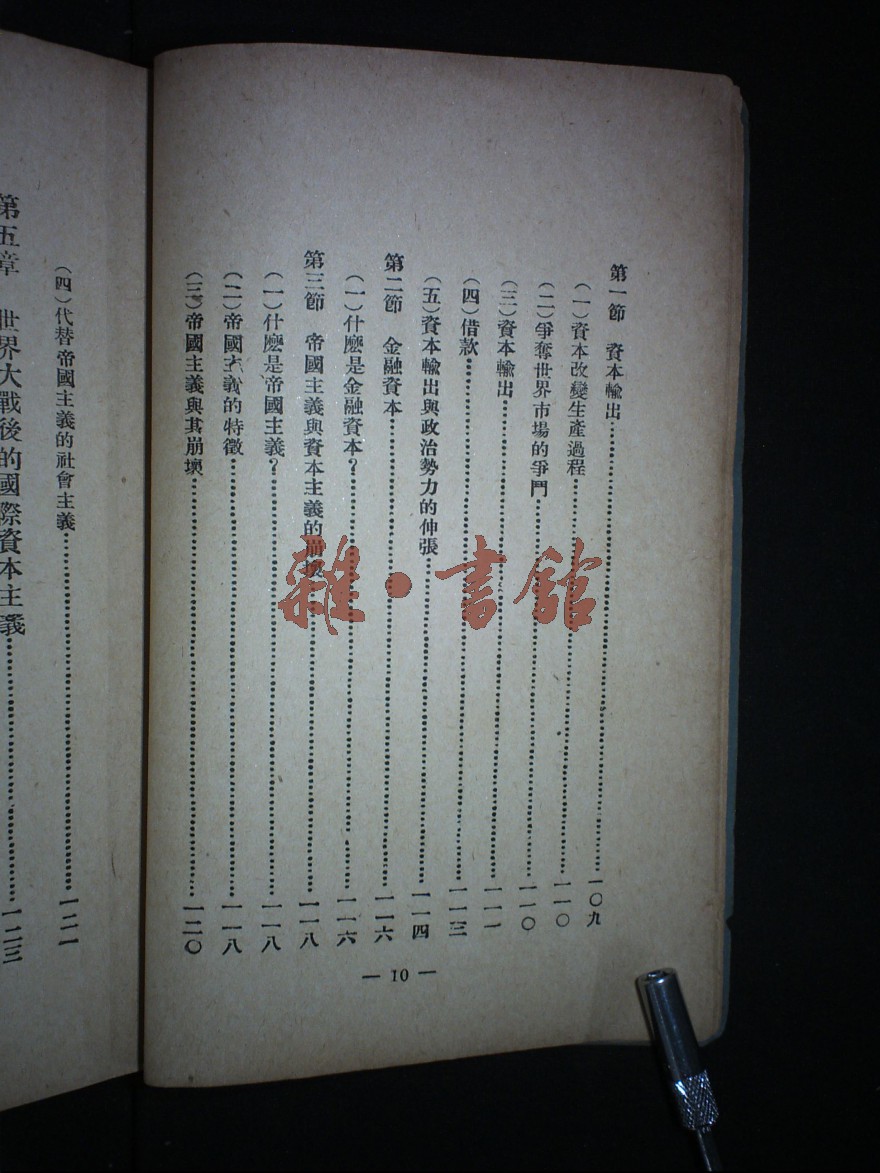 第一節　資本輸出…………一〇九
（一）資本改變生產過程…………一一〇
（二）爭奪世界市場的爭鬥…………一一〇
（三）資本輸出…………一一一
（四）借款…………一一三
（五）資本輸出與政治勢力的伸張…………一一四
第二節　金融資本…………一一六
（一）什麼是金融資本？…………一一六
第三節　帝國主義與資本主義的崩壞…………一一八
（一）什麼是帝國主義？…………一一八
（二）帝國主義的特徵…………一一八
（三）帝國主義與其崩壞…………一二〇
— 10 —
（四）代替帝國主義的社會主義…………一二一
第五章　世界大戰後的國際資本主義…………一二三
雜·書館